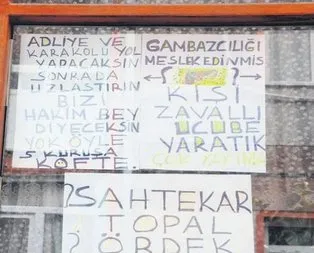 ADLİYE VE
KARAKOLU YOL
YAPACAKSIN
SONRADA
UZLAŞTIRIN
BİZİ
HAKİM BEY
DİYECEKSİN
YOK ÖYLE
5 KURUŞA
KÖFTE
GAMBAZCILIĞI
MESLEK EDİNMİŞ
KİŞİ
ZAVALLI
UCUBE
YARATIK
ÇOK YAKINDA
?SAHTEKAR
TOPAL
?ÖRDEK